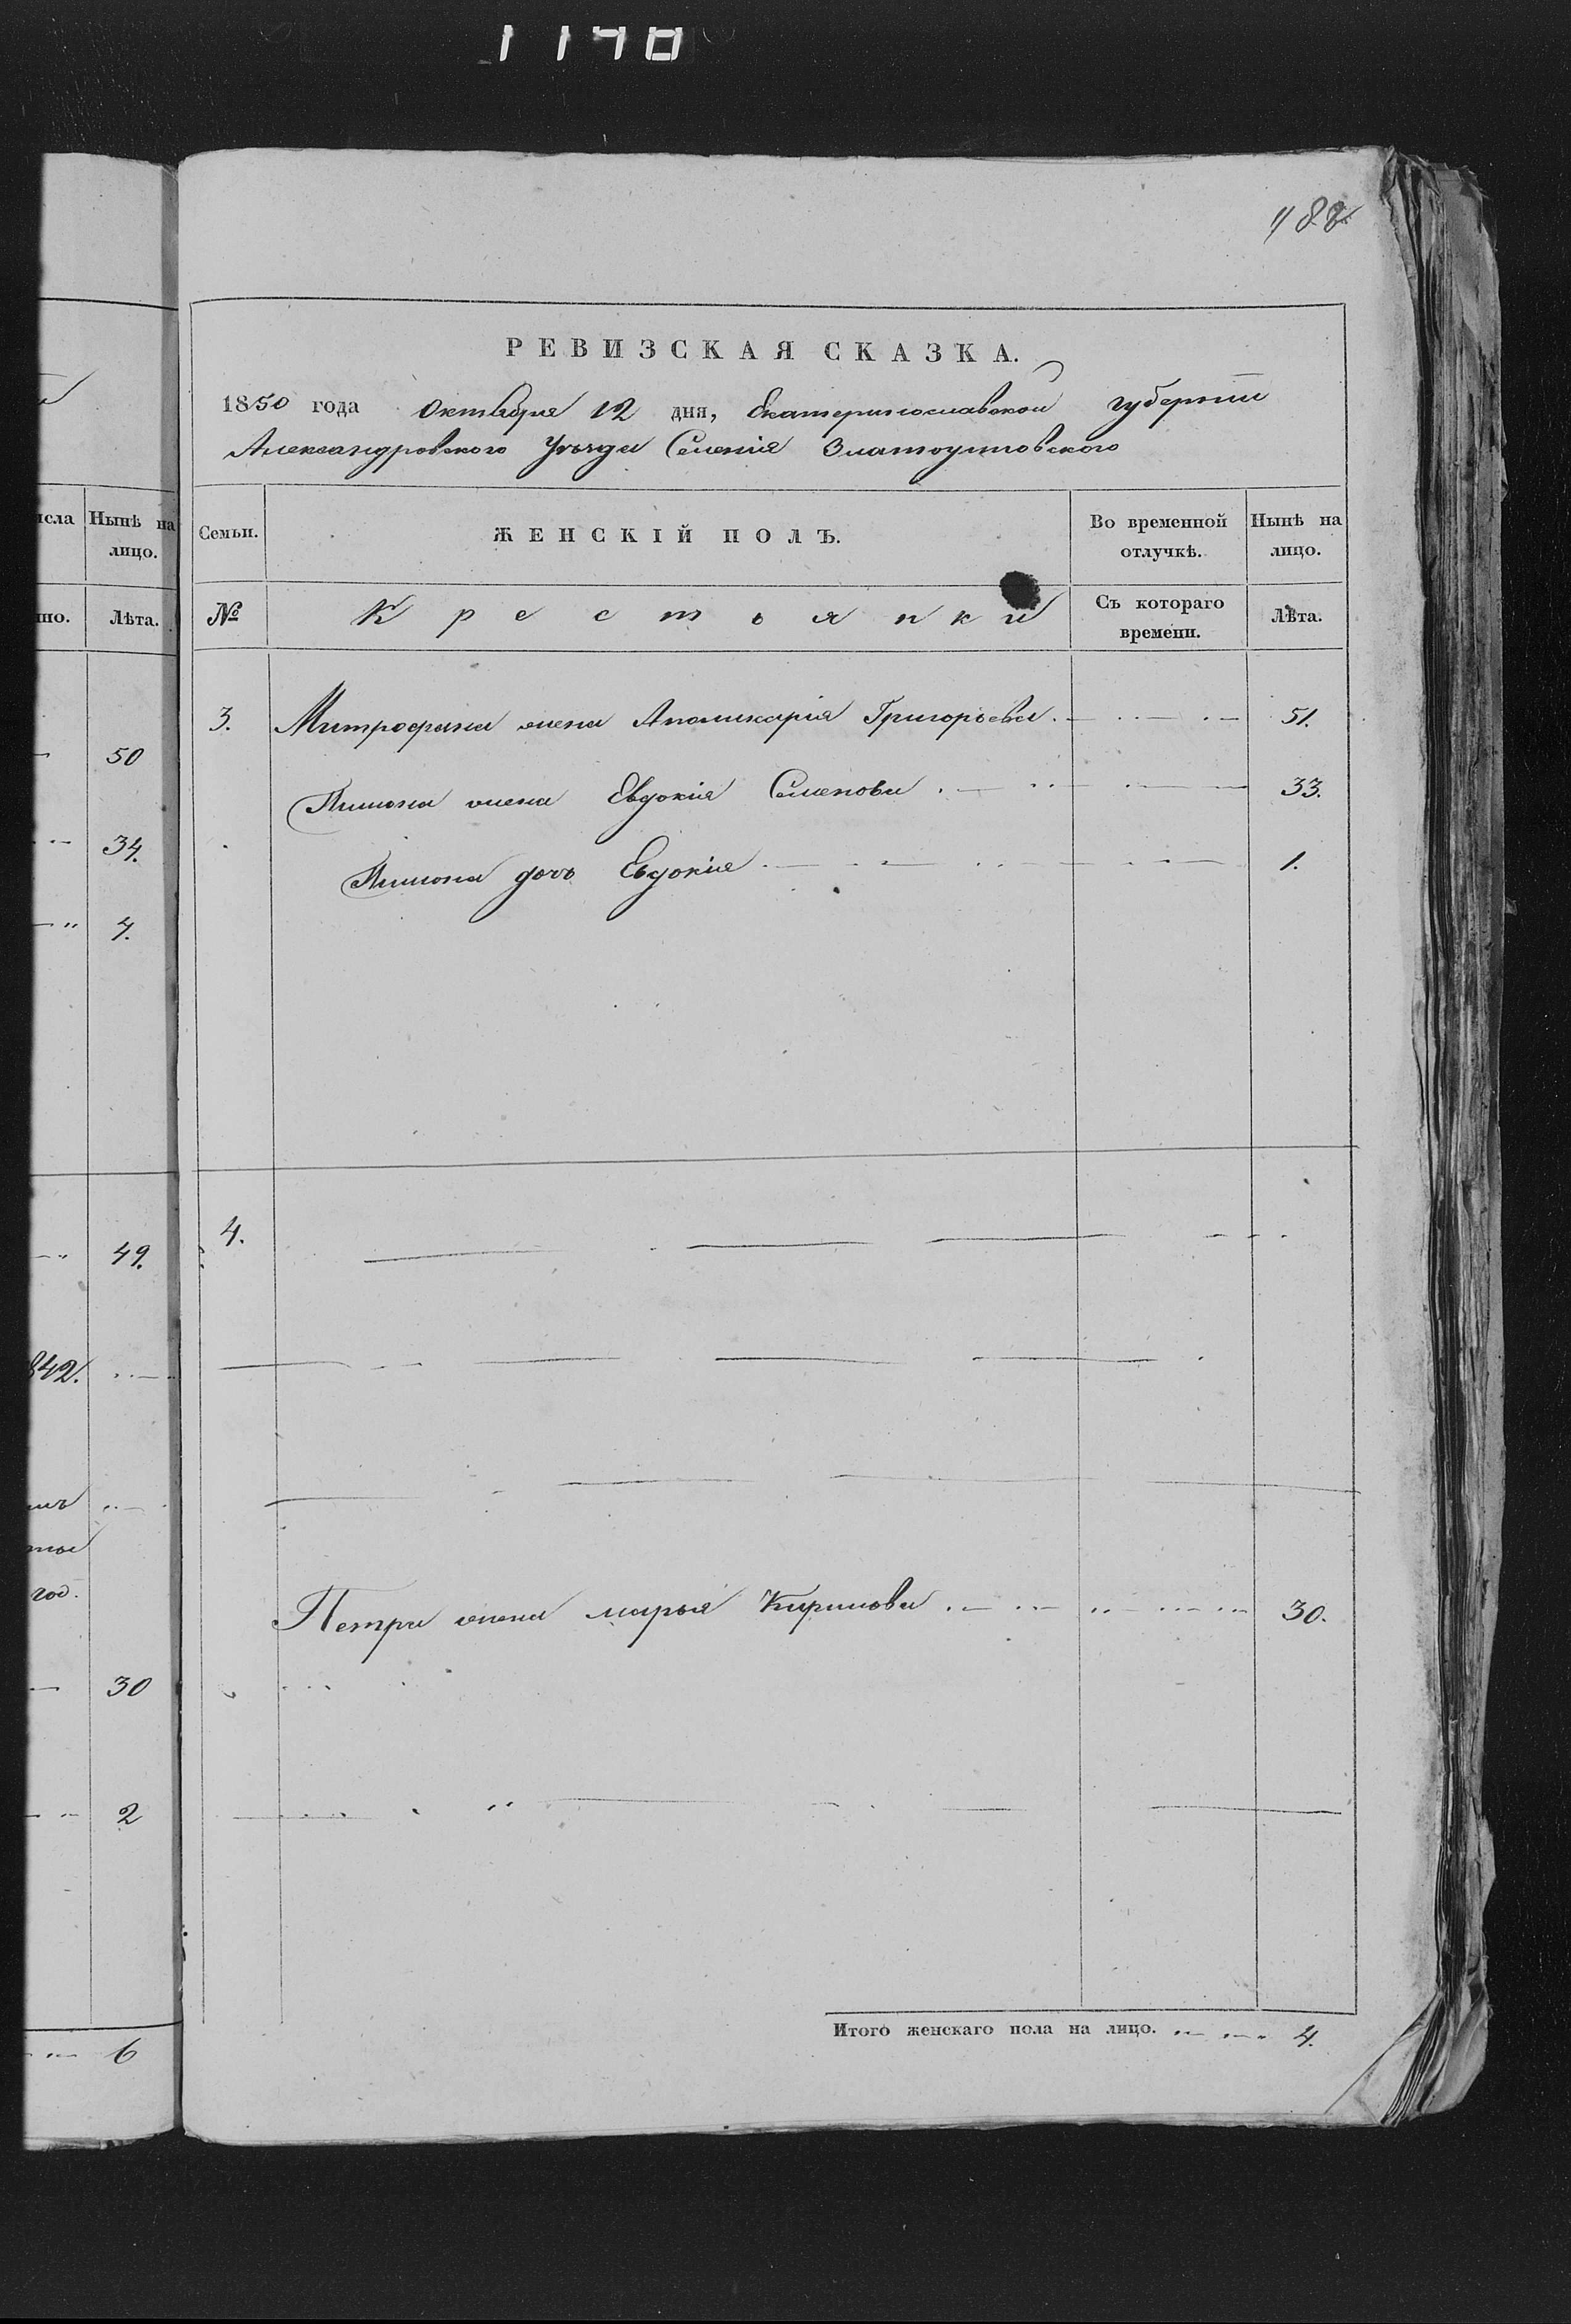 182
сла
Нынѣ на
лицо.
но.
Лѣта.
50
34.
7.
49.
842.
мъ
год.
30
2
6
РЕВИЗСКАЯ СКАЗКА.
1850 года Октября 12 дня, Екатеринославской губерніи
Александровского Уѣзда Селенія Златоустовского
Семьи.
ЖЕНСКІЙ ПОЛЪ.
Во временной
отлучкѣ.
Нынѣ на
лицо.
№
Крестьянки
Съ котораго
времени.
Лѣта.
3. Митрофана жена Аполикарія Григорьева. 51.
жена Евдокія Семенова 33.
дочь Евдокія 1.
4.
Петра жена марья Кирилова 30.
Итого женскаго пола на лицо. 4.